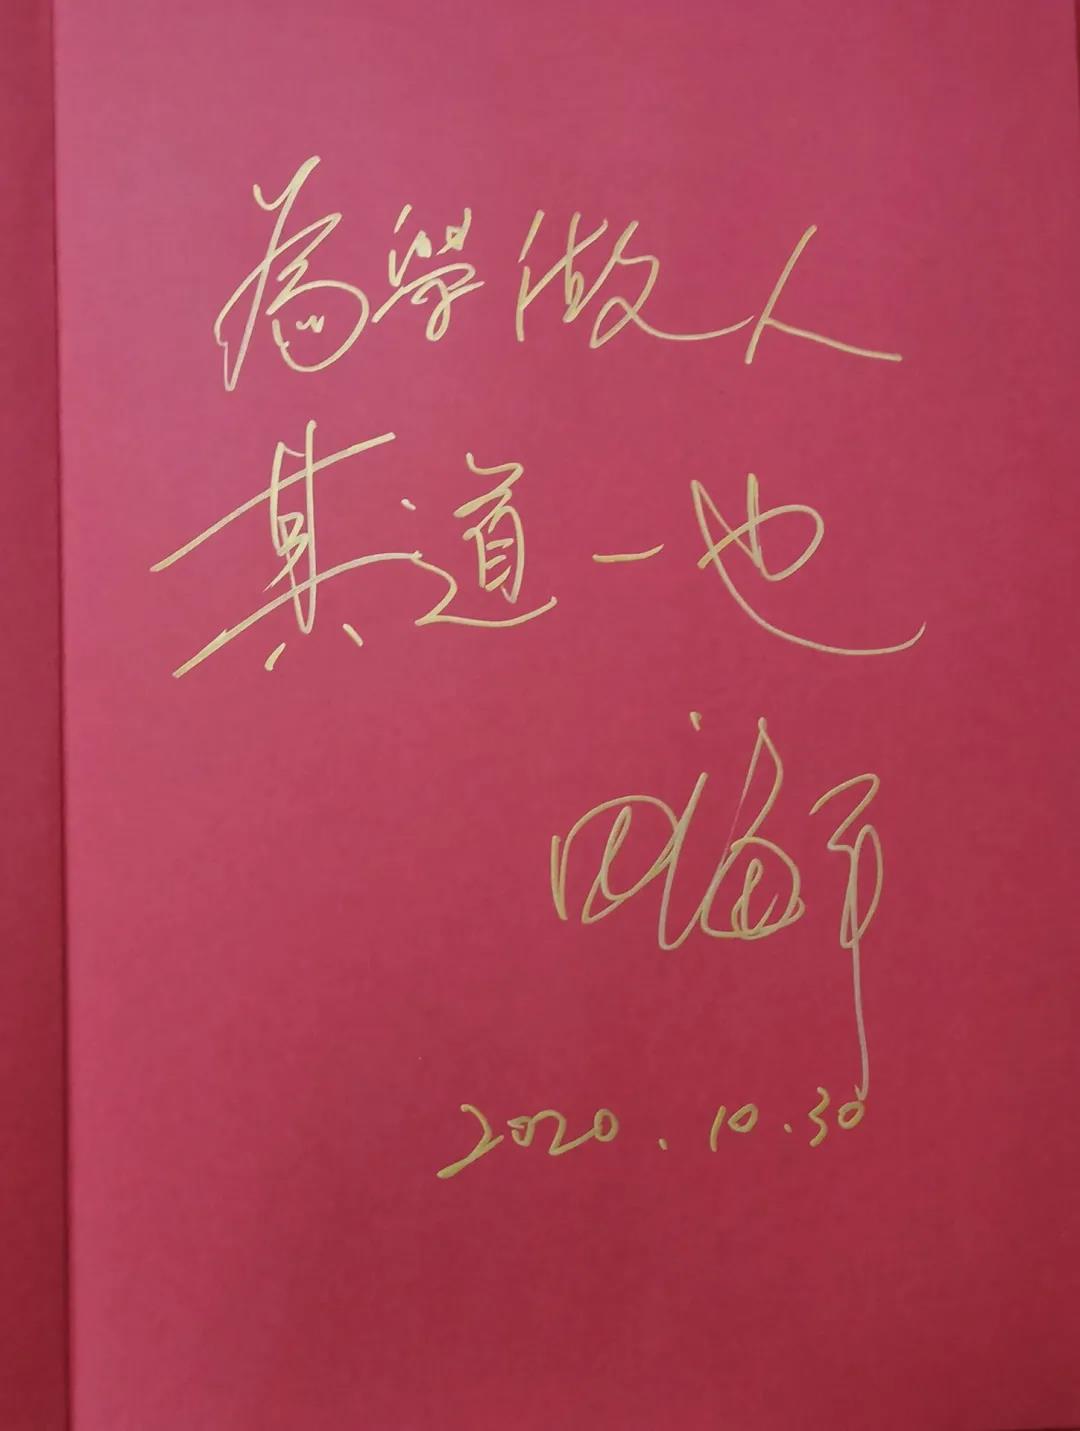 為學做人
其道一也
2020.10.30